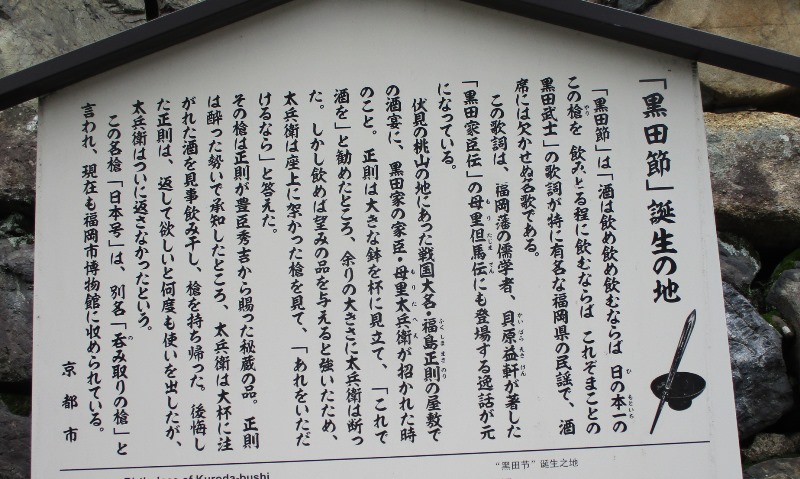 「黒田節」誕生の地
「黒田節」は「酒は飲め飲め飲むならば 日の本一の
この槍を 飲みとる程に飲むならば これぞまことの
黒田武士」の歌詞が特に有名な福岡県の民謡で、酒
席には欠かせぬ名歌である。
この歌詞は、福岡藩の儒学者、貝原益軒が著した
「黒田家臣伝」の母里但馬伝にも登場する逸話が元
になっている。
伏見の桃山の地にあった戦国大名・福島正則の屋敷で
の酒宴に、黒田家の家臣・母里太兵衛が招かれた時
のこと。正則は大きな鉢を杯に見立て、「これで
酒を」と勧めたところ、余りの大きさに太兵衛は断っ
た。しかし飲めば望みの品を与えると強いたため、
太兵衛は座上に架かった槍を見て、「あれをいただ
けるなら」と答えた。
その槍は正則が豊臣秀吉から賜った秘蔵の品。正則
は酔った勢いで承知したところ、太兵衛は大杯に注
がれた酒を見事飲み干し、槍を持ち帰った。後悔し
た正則は、返して欲しいと何度も使いを出したが、
太兵衛はついに返さなかったという。
この名槍「日本号」は、別名「呑み取りの槍」と
言われ、現在も福岡市博物館に収められている。
京都市
Birthplace of Kuroda-bushi
“黑田节”诞生之地